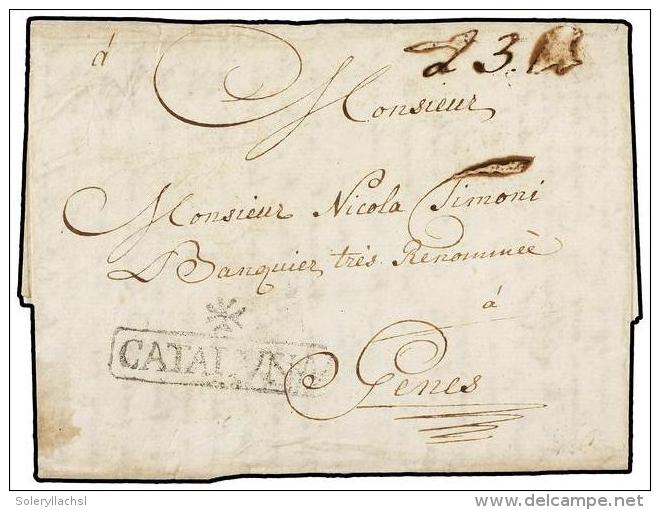 á
23.
Monsieur
Monsieur Nicola Simoni
Banquier très Renommeè
á
Genes
CATALUNA
Soleryllachsl
delcampe.net